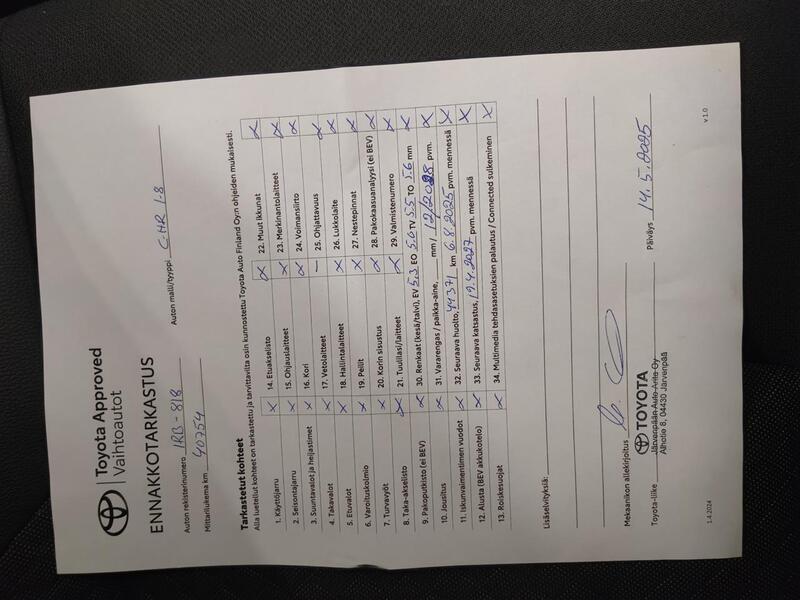 Toyota Approved
Vaihtoautot
ENNAKKOTARKASTUS
Auton rekisterinumero IRB-818 Auton malli/tyyppi C-HR 1.8
Mittarilukema km 40754
Tarkastetut kohteet
Alla luetellut kohteet on tarkastettu ja tarvittavilta osin kunnostettu Toyota Auto Finland Oy:n ohjeiden mukaisesti.
1. Käyttöjarru X 14. Etuakselisto X 22. Muut ikkunat X
2. Seisontajarru X 15. Ohjauslaitteet X 23. Merkinantolaitteet X
3. Suuntavalot ja heijastimet X 16. Kori X 24. Voimansiirto X
4. Takavalot X 17. Vetolaitteet — 25. Ohjattavuus X
5. Etuvalot X 18. Hallintalaitteet X 26. Lukkolaite X
6. Varoituskolmio X 19. Peilit X 27. Nestepinnat X
7. Turvavyöt X 20. Korin sisustus X 28. Pakokaasuanalyysi (ei BEV) X
8. Taka-akselisto X 21. Tuulilasi/laitteet X 29. Valmistenumero X
9. Pakoputkisto (ei BEV) X 30. Renkaat (kesä/talvi), EV 5.3 EO 5.0 TV 5.5 TO 5.6 mm X
10. Jousitus X 31. Vararengas / paikka-aine, ___ mm / 12/2028 pvm. X
11. Iskunvaimentimen vuodot X 32. Seuraava huolto, 44371 km 6.8.2025 pvm. mennessä X
12. Alusta (BEV akkukotelo) X 33. Seuraava katsastus, 19.4.2027 pvm. mennessä X
13. Roiskesuojat X 34. Multimedia tehdasasetuksien palautus / Connected sulkeminen X
Lisäselvityksiä:
Mekaanikon allekirjoitus
Toyota-liike TOYOTA Päiväys 14.5.2025
Järvenpään Auto-Arita Oy
Alhotie 8, 04430 Järvenpää
1.4.2024 v 1.0